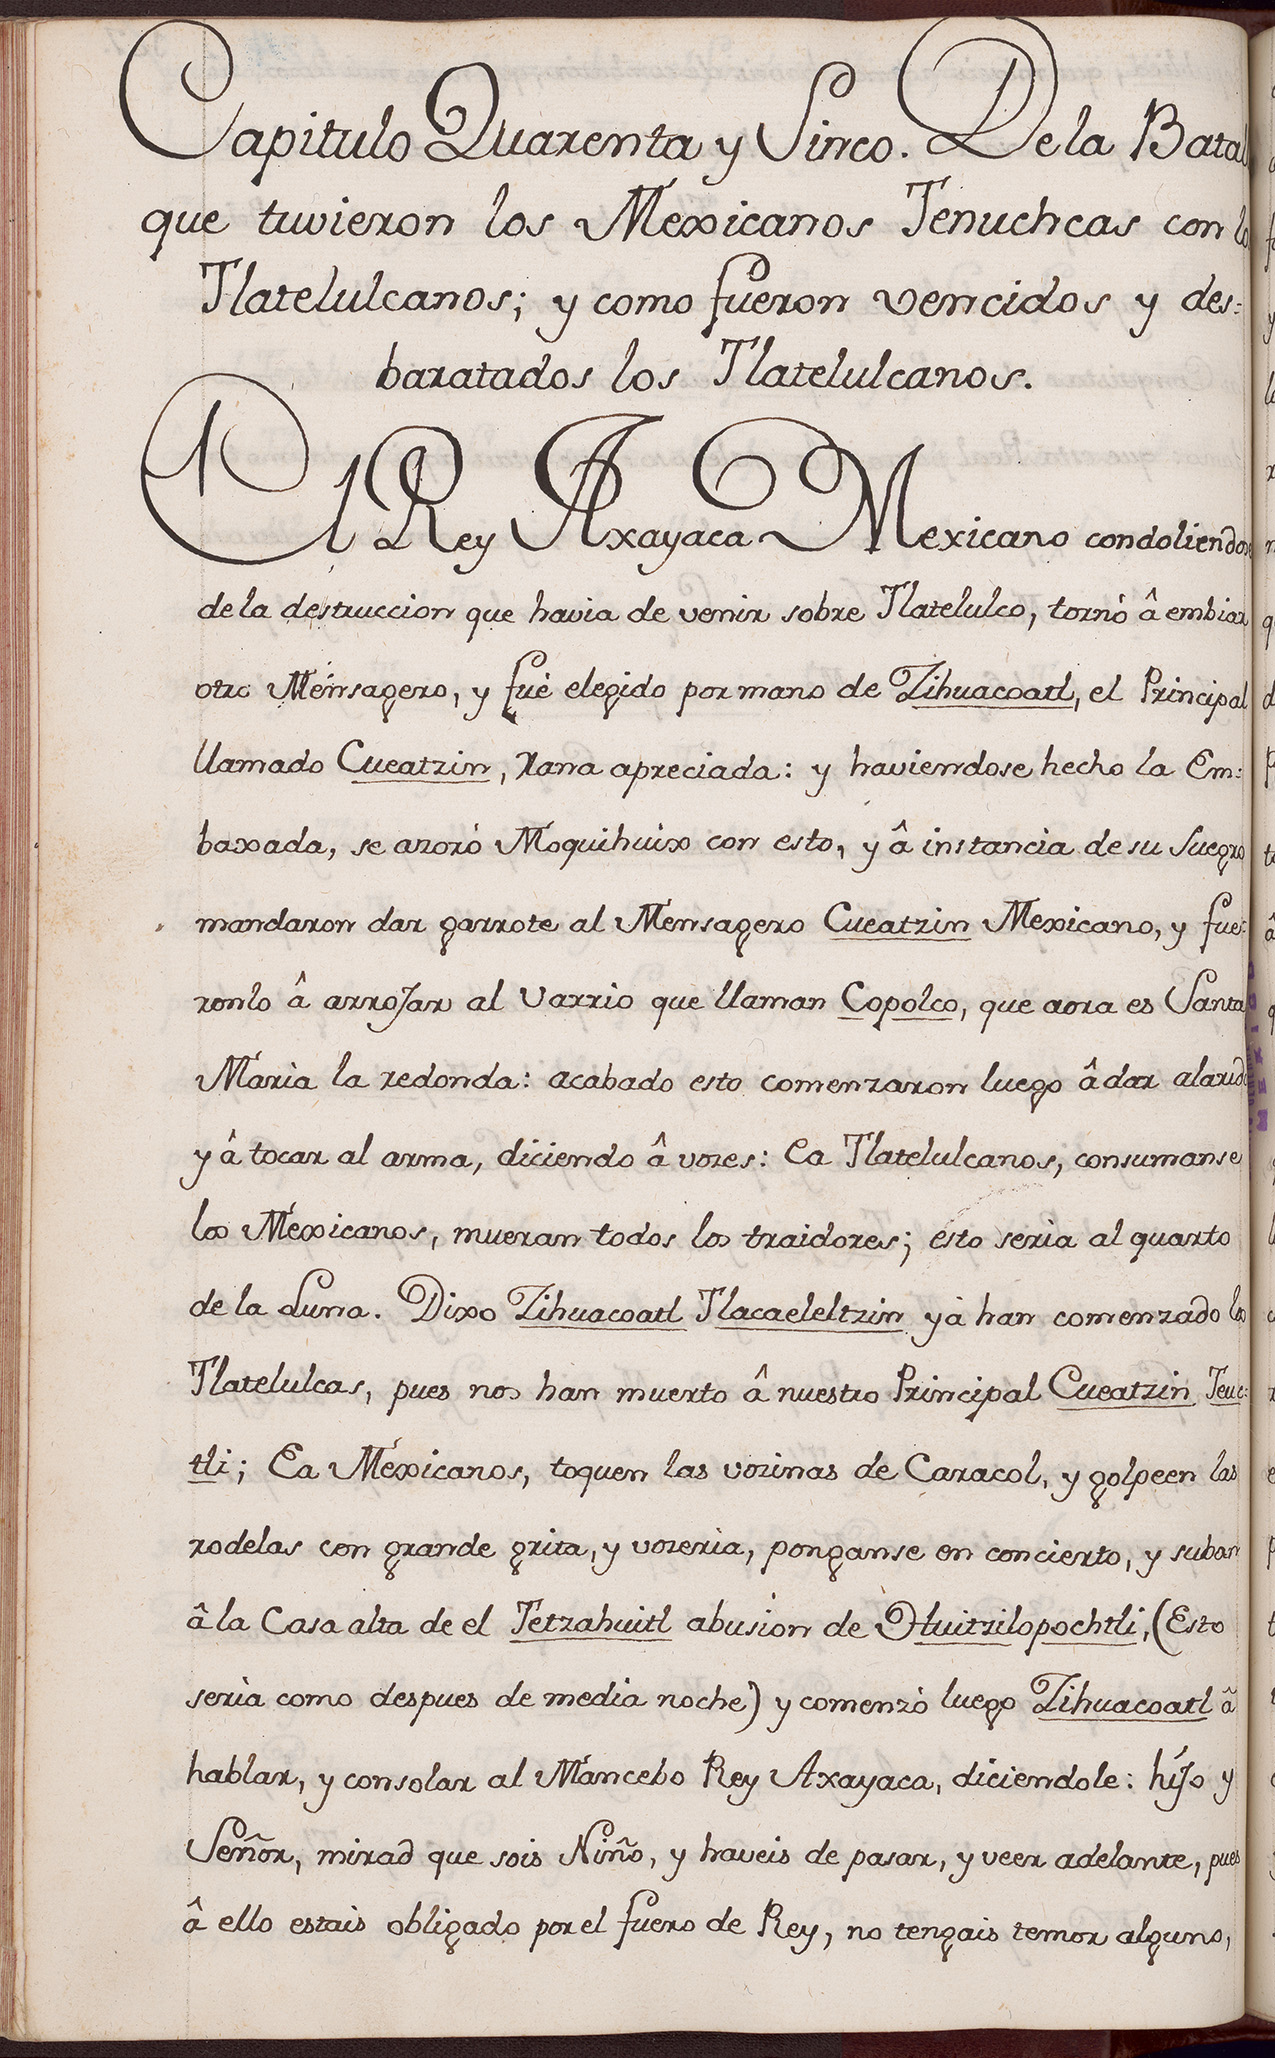 Capitulo Quarenta y Sinco. De la Batal
que tuvieron los Mexicanos Tenuchcas con lo
Tlatelulcanos; y como fueron vencidos y des=
baratados los Tlatelulcanos.
El Rey Axayaca Mexicano condoliendose
de la destruccion que havia de venir sobre Tlatelulco, tornò â embiar
otro Mensagero, y fuè elegido por mano de Zihuacoatl, el Principal
llamado Cueatzin, Rana apreciada: y haviendose hecho la Em=
baxada, se azorò Moquihuix con esto, y â instancia de su Suegro
mandaron dar garrote al Mensagero Cueatzin Mexicano, y fue=
ronlo â arroJar al Varrio que llaman Copolco, que aora es Santa
Maria la redonda: acabado esto comenzaron luego â dar alarid
y â tocar al arma, diciendo â vozes: Ea Tlatelulcanos, consumanse
los Mexicanos, mueran todos los traidores; esto seria al quarto
de la Luna. Dixo Zihuacoatl Tlacaeleltzin yà han comenzado los
Tlatelulcas, pues nos han muerto â nuestro Principal Cueatzin Teuc=
tli; Ea Mexicanos, toquen las vozinas de Caracol, y golpeen las
rodelas con grande grita, y vozeria, ponganse en concierto, y suban
â la Casa alta de el Tetzahuitl abusion de Huitzilopochtli, (Esto
seria como despues de media noche) y comenzò luego Zihuacoatl â
hablar, y consolar al Mancebo Rey Axayaca, diciendole: hiJo y
Señor, mirad que sois Niño, y haveis de pasar, y veer adelante, pues
â ello estais obligado por el fuero de Rey, no tengais temor alguno,